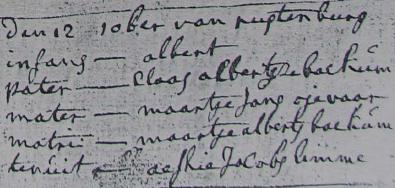 den 12 10ber van rustenburg
infans — albert
pater — Claas albertsze backum
mater — maartje Jans ojevaar
matri — maartje alberts backum
tenuit — aefkia Jacobs limme